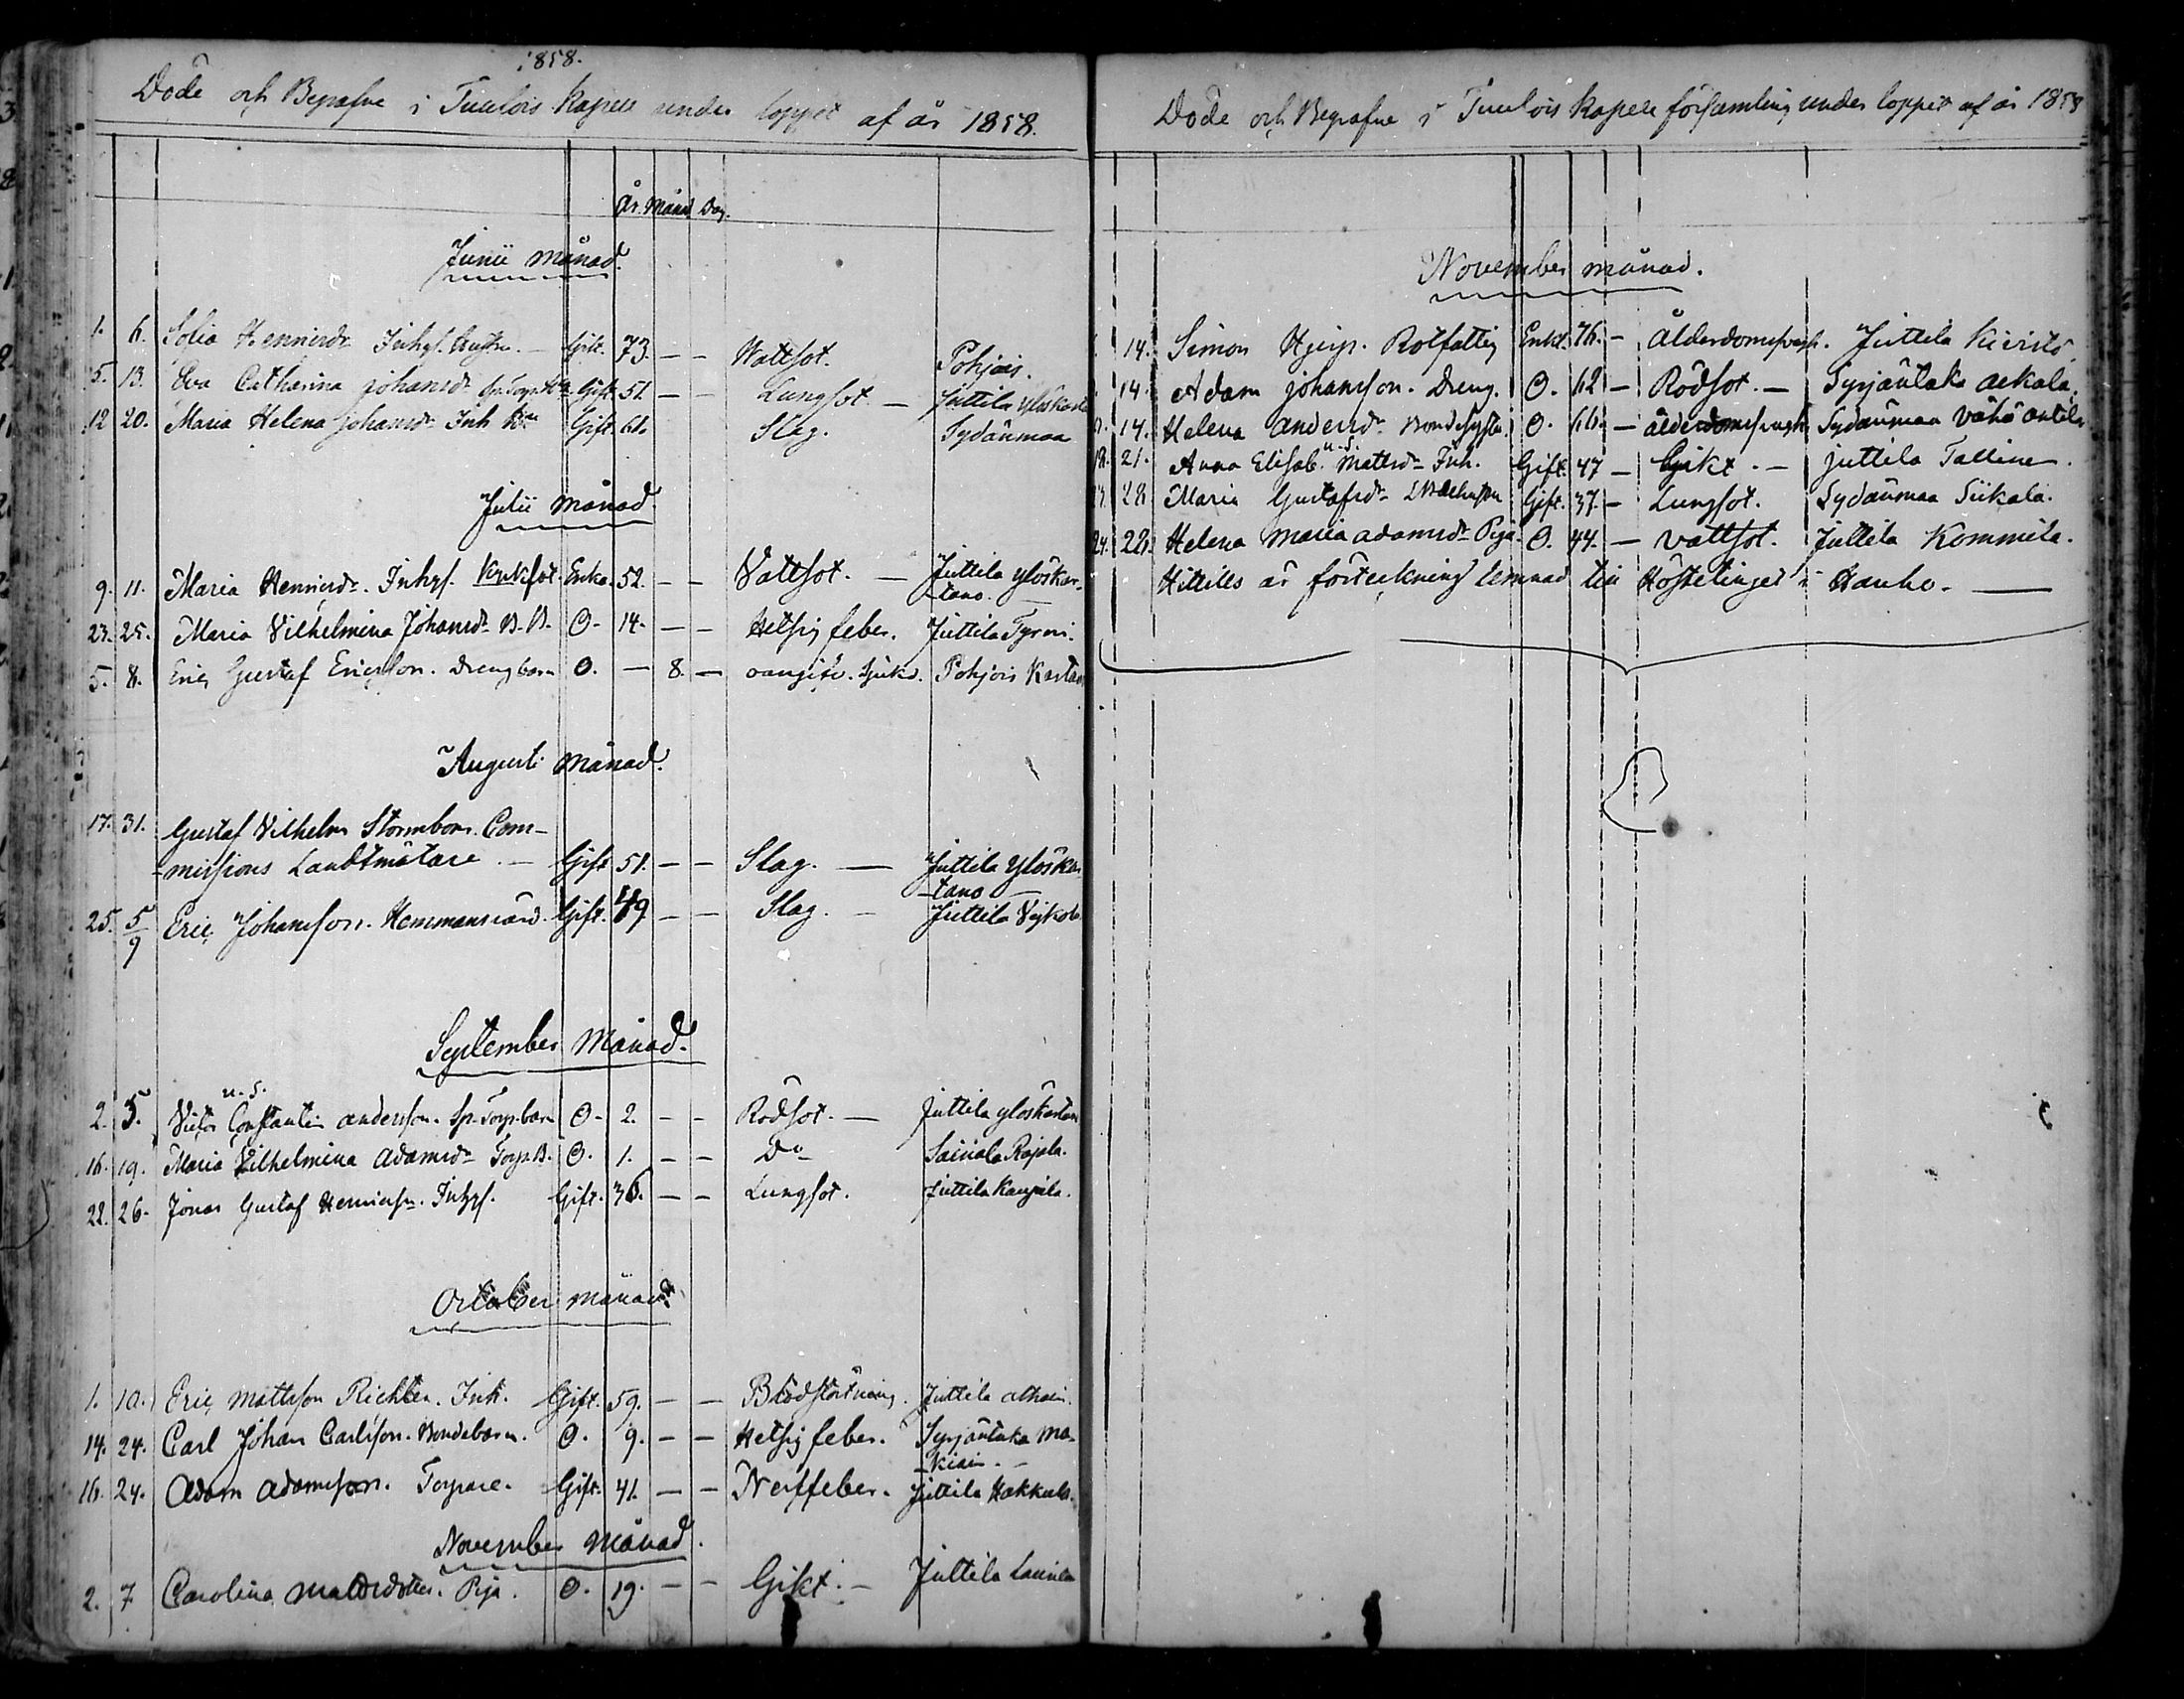 1858.
Döde och Begrafne i Tuulois Kapell under loppet af år 1858.
År. Månad Dag.
Junii månad.
1. 6. Sofia Henricsdr Inhys. Gift. 73 — — Wattsot. Pohjois.
5. 13. Eva Catharina Johansdr Gift. 51. — — Lungsot. — Juttila
12 20. Maria Helena Johansdr Inh. Gift. 61. Slag. Sydänmaa
Julii månad.
9. 11. Maria Henricsdr. Inhys. Enka. 52. — — Vattsot. — Juttila Ylöskar-
-tano.
23. 25. Maria Vilhelmina Johansdr B. B. O. 14. — — Hetsig feber. Juttila Tyrni.
5. 8. Eric Gustaf Ericsson. Drengbarn O. — 8. — oangifv. Sjukd. Pohjois
Augusti månad.
17. 31. Gustaf Vilhelm Stormbom. Com-
-missions Landtmätare. — Gift 51. — — Slag. — Juttila Ylöskar-
-tano —
25. 5/9 Eric Johansson. Gift. 49 — — Slag. — Juttila
September månad.
u. S.
2. 5. Victor Constantin Andersson. Sp. Torp. barn O. 2. — — Rödsot. — Juttila Ylöskartano
16. 19. Maria Vilhelmina Adamsdr Torp. B. O. 1. — — Do Sairiala Rajala.
22. 26. Jonas Gustaf Henricss. Inhys. Gift. 36. — — Lungsot. Juttila Kaupila.
October månad.
1. 10. Eric Mattsson Richter. Inh. Gift. 59. — — Blodstörtning. Juttila
14. 24. Carl Johan Carlsson. Bondebarn. O. 9. — — Hetsig feber. Syrjäntaka Mä-
-kiäis. —
16. 24. Adam Adamsson. Torpare. Gift. 41. — — Nerffeber. Juttila Hakkala.
November månad.
2. 7 Carolina Mattsdotter. Piga. O. 19. — — Gikt. — Juttila
Döde och Begrafne i Tuulois Kapell församling under loppet af år 1858
November månad.
14. Simon Rotfattig Enkl. 76. — Ålderdomsbräck. Juttila
14. Adam Johansson. Dreng. O. 62 — Rödsot. — Syrjäntaka
14. Helena Andersdr O. 66. — ålderdomsbräck. Sydänmaa Vähä Antila
u. S.
18. 21. Anna Elisab. Mattsdr Inh. Gift. 47 — Gikt. — Juttila Tallinen.
28 Maria Gustafsdr Gift. 37. — Lungsot. Sydänmaa Siikala.
24. 28. Helena Maria Adamsdr Piga. O. 44. — Vattsot. Juttila Kommila.
Hittills är förteckning lemnad till Höstetinget i Hauho. —